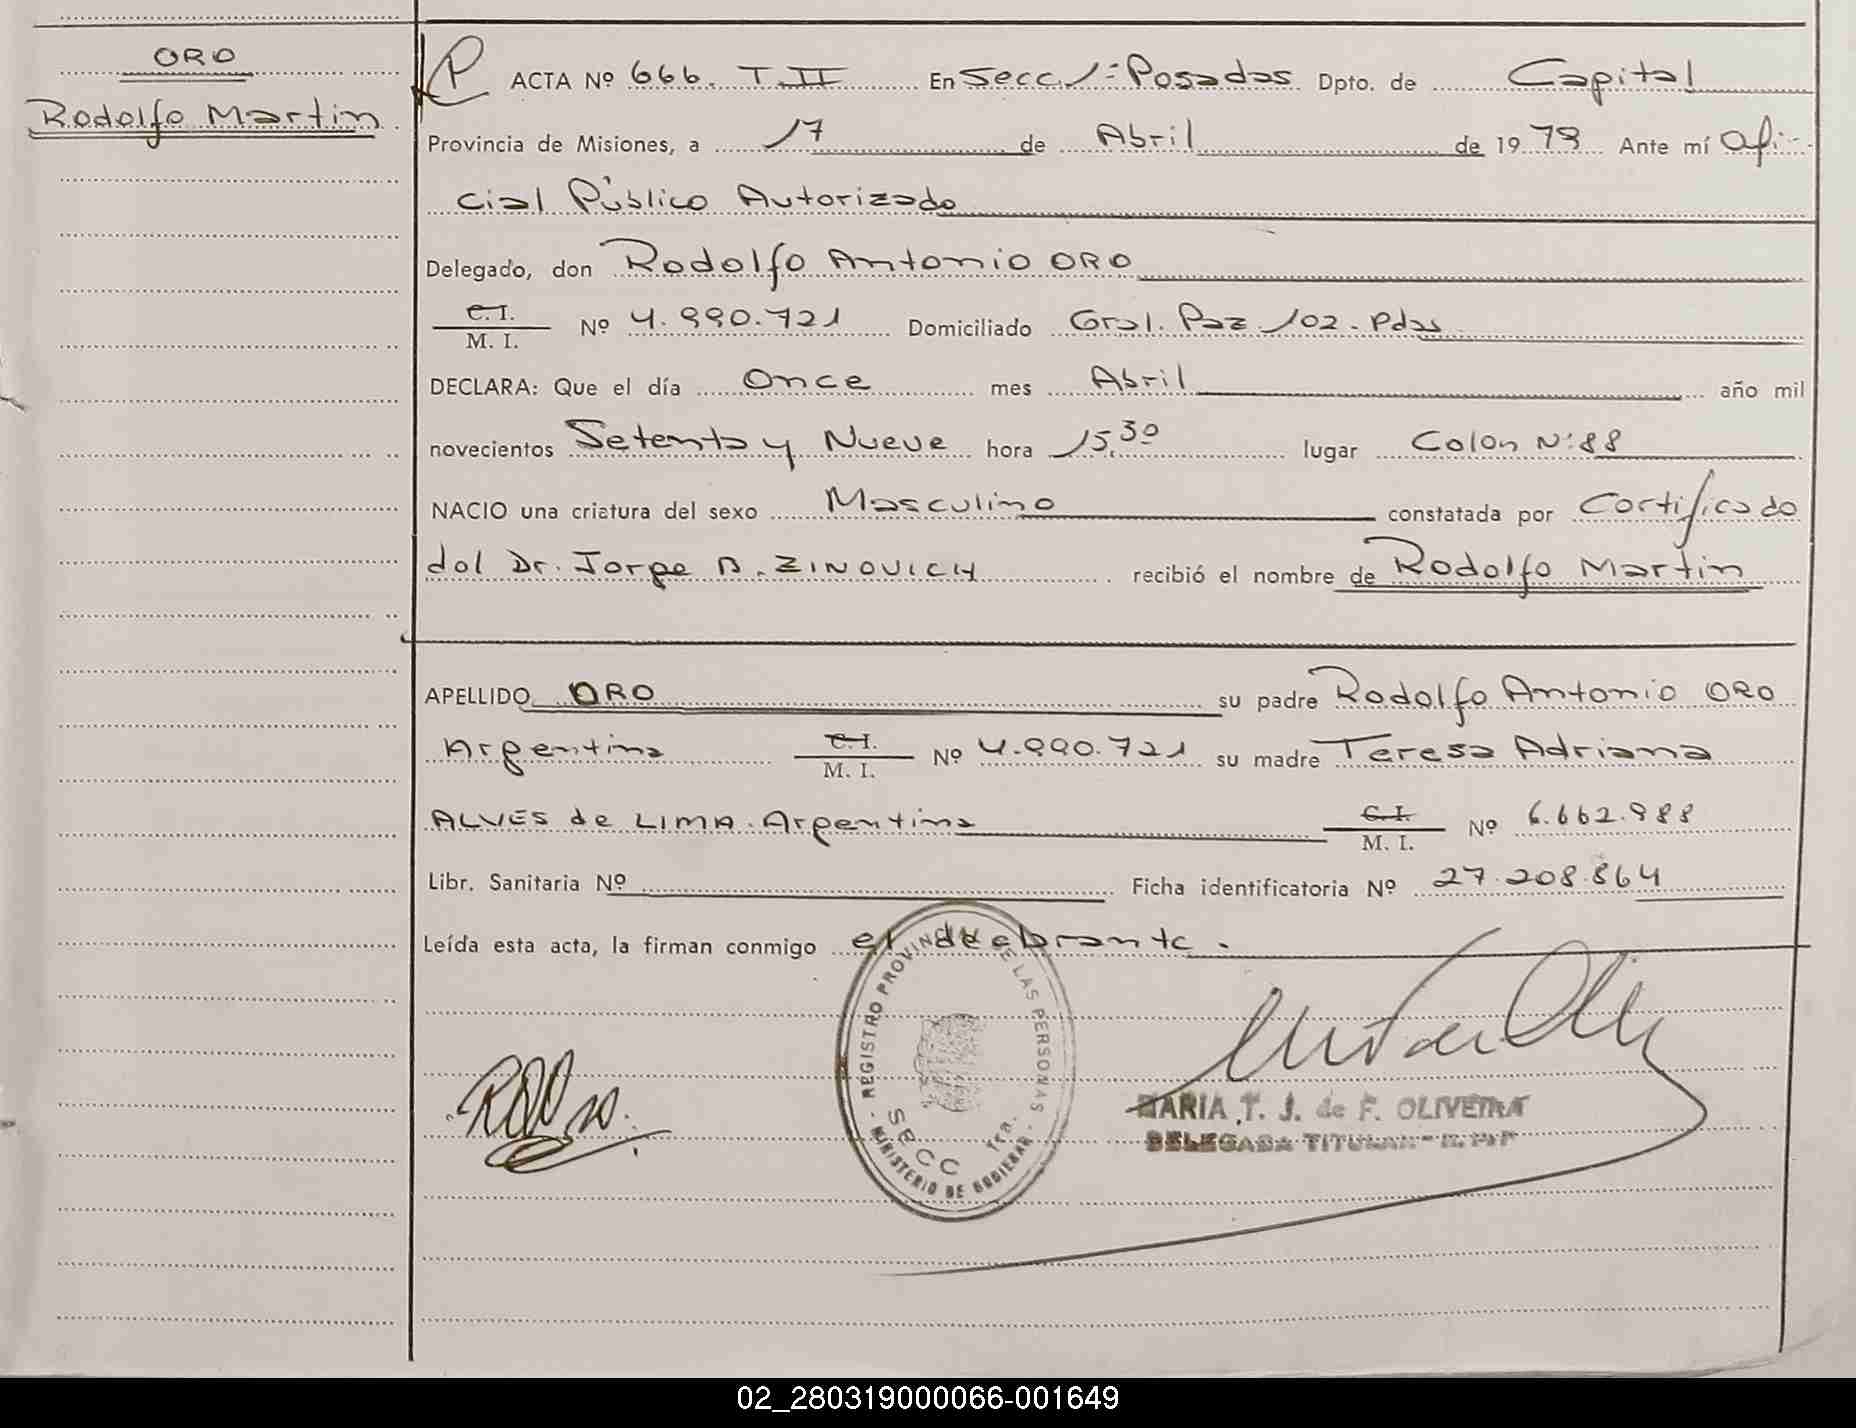 ORO
Rodolfo Martin
P ACTA Nº 666. T.II En Secc. 1ª Posadas Dpto. de Capital
Provincia de Misiones, a 17 de Abril de 1979 Ante mí Ofi-
cial Público Autorizado
Delegado, don Rodolfo Antonio ORO
C.I.
M. I. Nº 4.990.721 Domiciliado Gral. Paz 102 - Pdas
DECLARA: Que el día Once mes Abril año mil
novecientos Setenta y Nueve hora 15,30 lugar Colon Nº 88
NACIO una criatura del sexo Masculino constatada por Certificado
del Dr. Jorge B. ZINOVICH recibió el nombre de Rodolfo Martin
APELLIDO ORO su padre Rodolfo Antonio ORO
Argentino C.I.
M. I. Nº 4.990.721 su madre Teresa Adriana
ALVES de LIMA. Argentina C.I.
M. I. Nº 6.662.988
Libr. Sanitaria Nº Ficha identificatoria Nº 27.208.864
Leída esta acta, la firman conmigo el declarante.
REGISTRO PROVINCIAL DE LAS PERSONAS
SECC 1ra.
MINISTERIO DE GOBIERNO
MARIA T. J. de F. OLIVEIRA
DELEGADA TITULAR
02_280319000066-001649